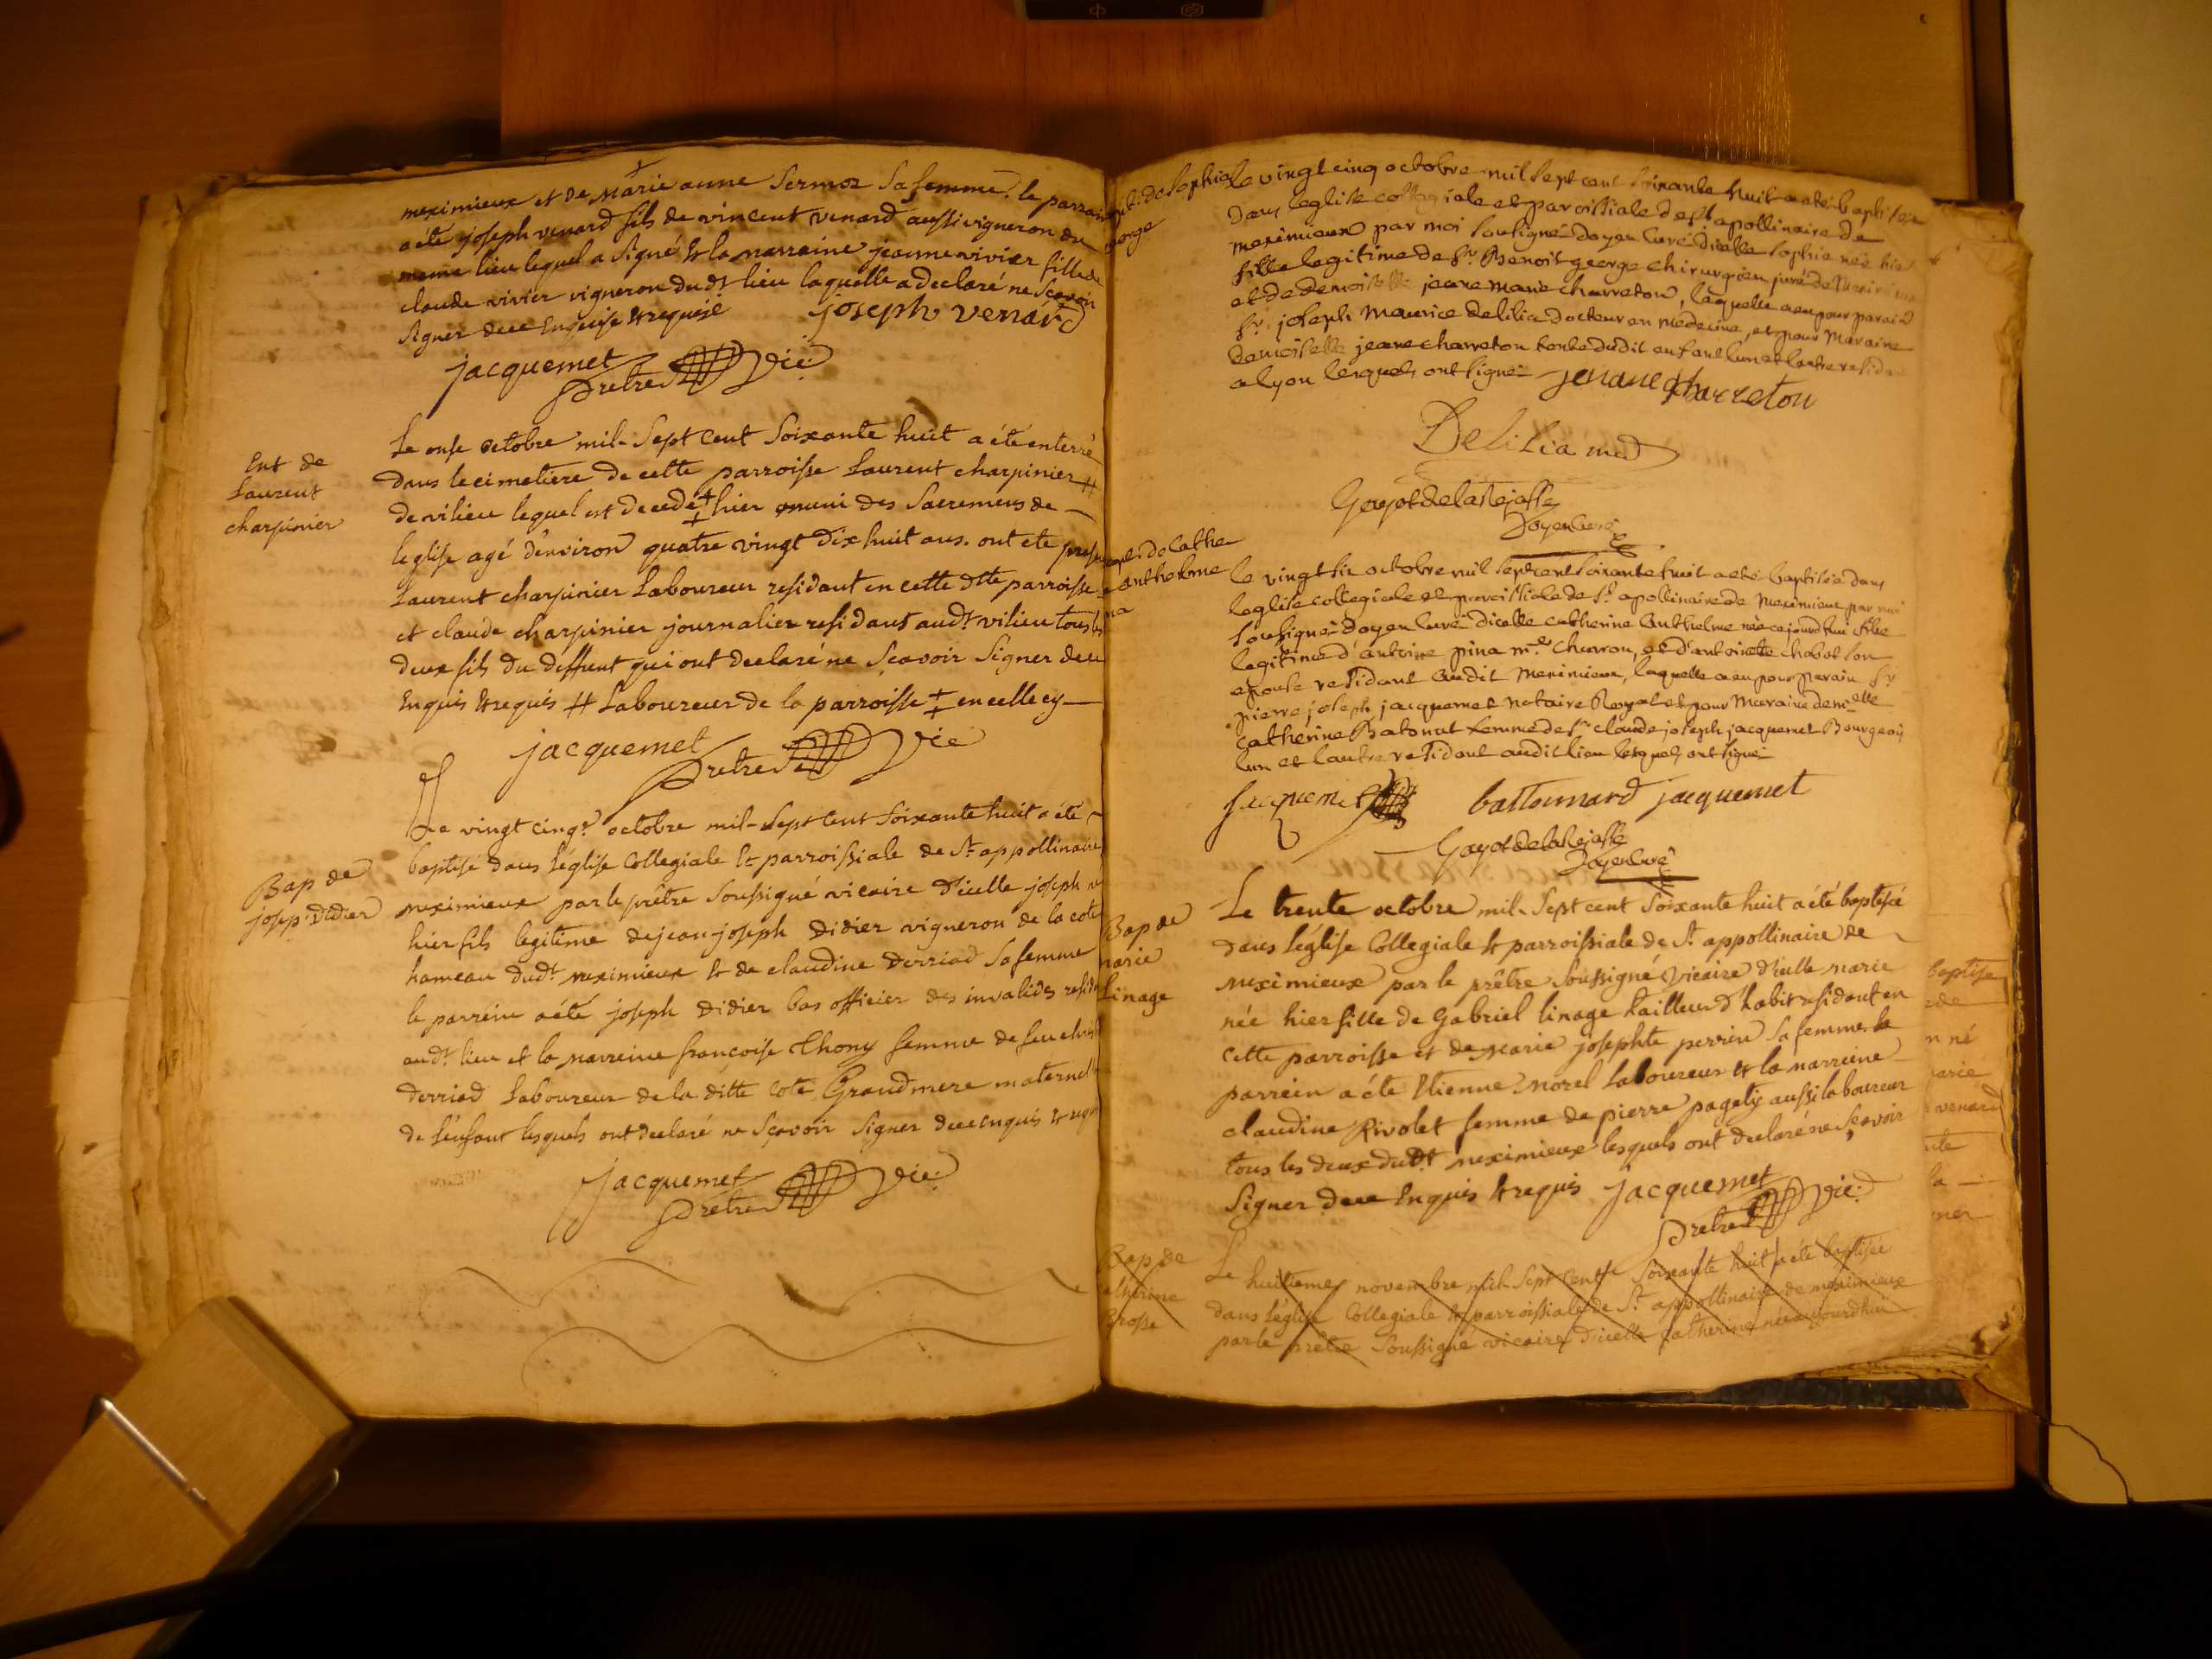 meximieux et de Marie anne Sermoz Sa femme. le parrain
a été joseph venard fils de vincent venard aussi vigneron du
meme lieu lequel a Signé & la marraine jeanne vivier fille de
claude vivier vigneron dudt lieu laquelle a declaré ne Sçavoir
Signer de ce Enquise & requise joseph venard
jacquemet
Pretre Vic:
Ent de
Laurent
charpinier
Le onse octobre mil Sept cent Soixante huit a été enterré
dans le cimetiere de cette parroisse Laurent charpinier #
de vilieu lequel est decedé ‡ hier muni des Sacremens de
leglise agé d'environ quatre vingt dix huit ans. ont ete
Laurent charpinier Laboureur residant en cette dtte parroisse
et claude charpinier journalier residant audt vilieu tous les
deux fils du deffunt qui ont declaré ne Sçavoir Signer de ce
Enquis & requis # Laboureur de la parroisse ‡ en celle cy
jacquemet
Pretre Vic
Bap de
josep Didier
Le vingt cinqe octobre mil Sept cent Soixante huit a été
baptisé dans l'église Collegiale & parroissiale de St appollinaire
meximieux par le prêtre Soussigné vicaire d'icelle joseph né
hier fils legitime de jean joseph Didier vigneron de la cote
hameau dudt meximieux & de claudine Derriad Sa femme
le parrein a été joseph Didier bas officier des invalides
audt lieu et la marreine françoise Thony femme de feu
Derriad Laboureur de la ditte cote Grandmere maternelle
de l'enfant lesquels ont declaré ne Sçavoir Signer de ce enquis &
jacquemet
Pretre Vic:
de Sophie
george
le vingt cinq octobre mil sept cent soixante huit a eté baptisée
Dans leglise collegiale et paroissiale de st apollinaire de
meximieux par moi sousigné doyen curé dicelle sophie née hier
fille legitime de sr Benoit george chirurgien juré de
et de demoiselle jeane marie charreton, laquelle a eu pour parain
sr joseph maurice delilia docteur en medecine, et pour Maraine
demoiselle jeane charreton tante dudit enfant lun et lautre
a lyon lesquels ont signé jenane charreton
Delilia med
Gayot de la Rejasse
Doyen curé
de Cathe
anthelme
na
le vingt six octobre mil sept cent soixante huit a eté baptisée dans
leglise collegiale et paroissiale de st apollinaire de meximieux par moi
sousigné doyen curé dicelle catherine Anthelme née ce jourdhui fille
legitime d'antoine pina mre charron, et d'antoinette chabot son
epouse residant audit meximieux, laquelle a eu pour parain sr
pierre joseph jacquemet notaire Royal et pour Maraine demelle
catherine Batonat femme de sr claude joseph jacquemet Bourgeois
lun et lautre residant audit lieu lesquels ont signé
jacquemet bastonnard jacquemet
Gayot de la Rejasse
Doyen curé
Bap de
marie
Linage
Le trente octobre mil Sept cent Soixante huit a été baptisée
dans l'église Collegiale & parroissiale de St appollinaire de
meximieux par le prêtre Soussigné Vicaire d'icelle marie
née hier fille de Gabriel linage tailleur d'habit residant en
cette parroisse et de marie josephte perrin Sa femme. Le
parrein a été Etienne morel Laboureur & la marreine
claudine Rivolet femme de pierre pagety aussi laboureur
tous les deux dudt meximieux lesquels ont declaré ne Sçavoir
Signer de ce Enquis & requis jacquemet
Pretre Vic:
Bap de
catherine
Grosse
Le huitieme novembre mil Sept Cent Soixante huit a été baptisée
dans l'église Collegiale & parroissiale de St appollinaire de meximieux
par le prêtre Soussigné vicaire d'icelle catherine née aujourdhui
baptise
né
venard
la